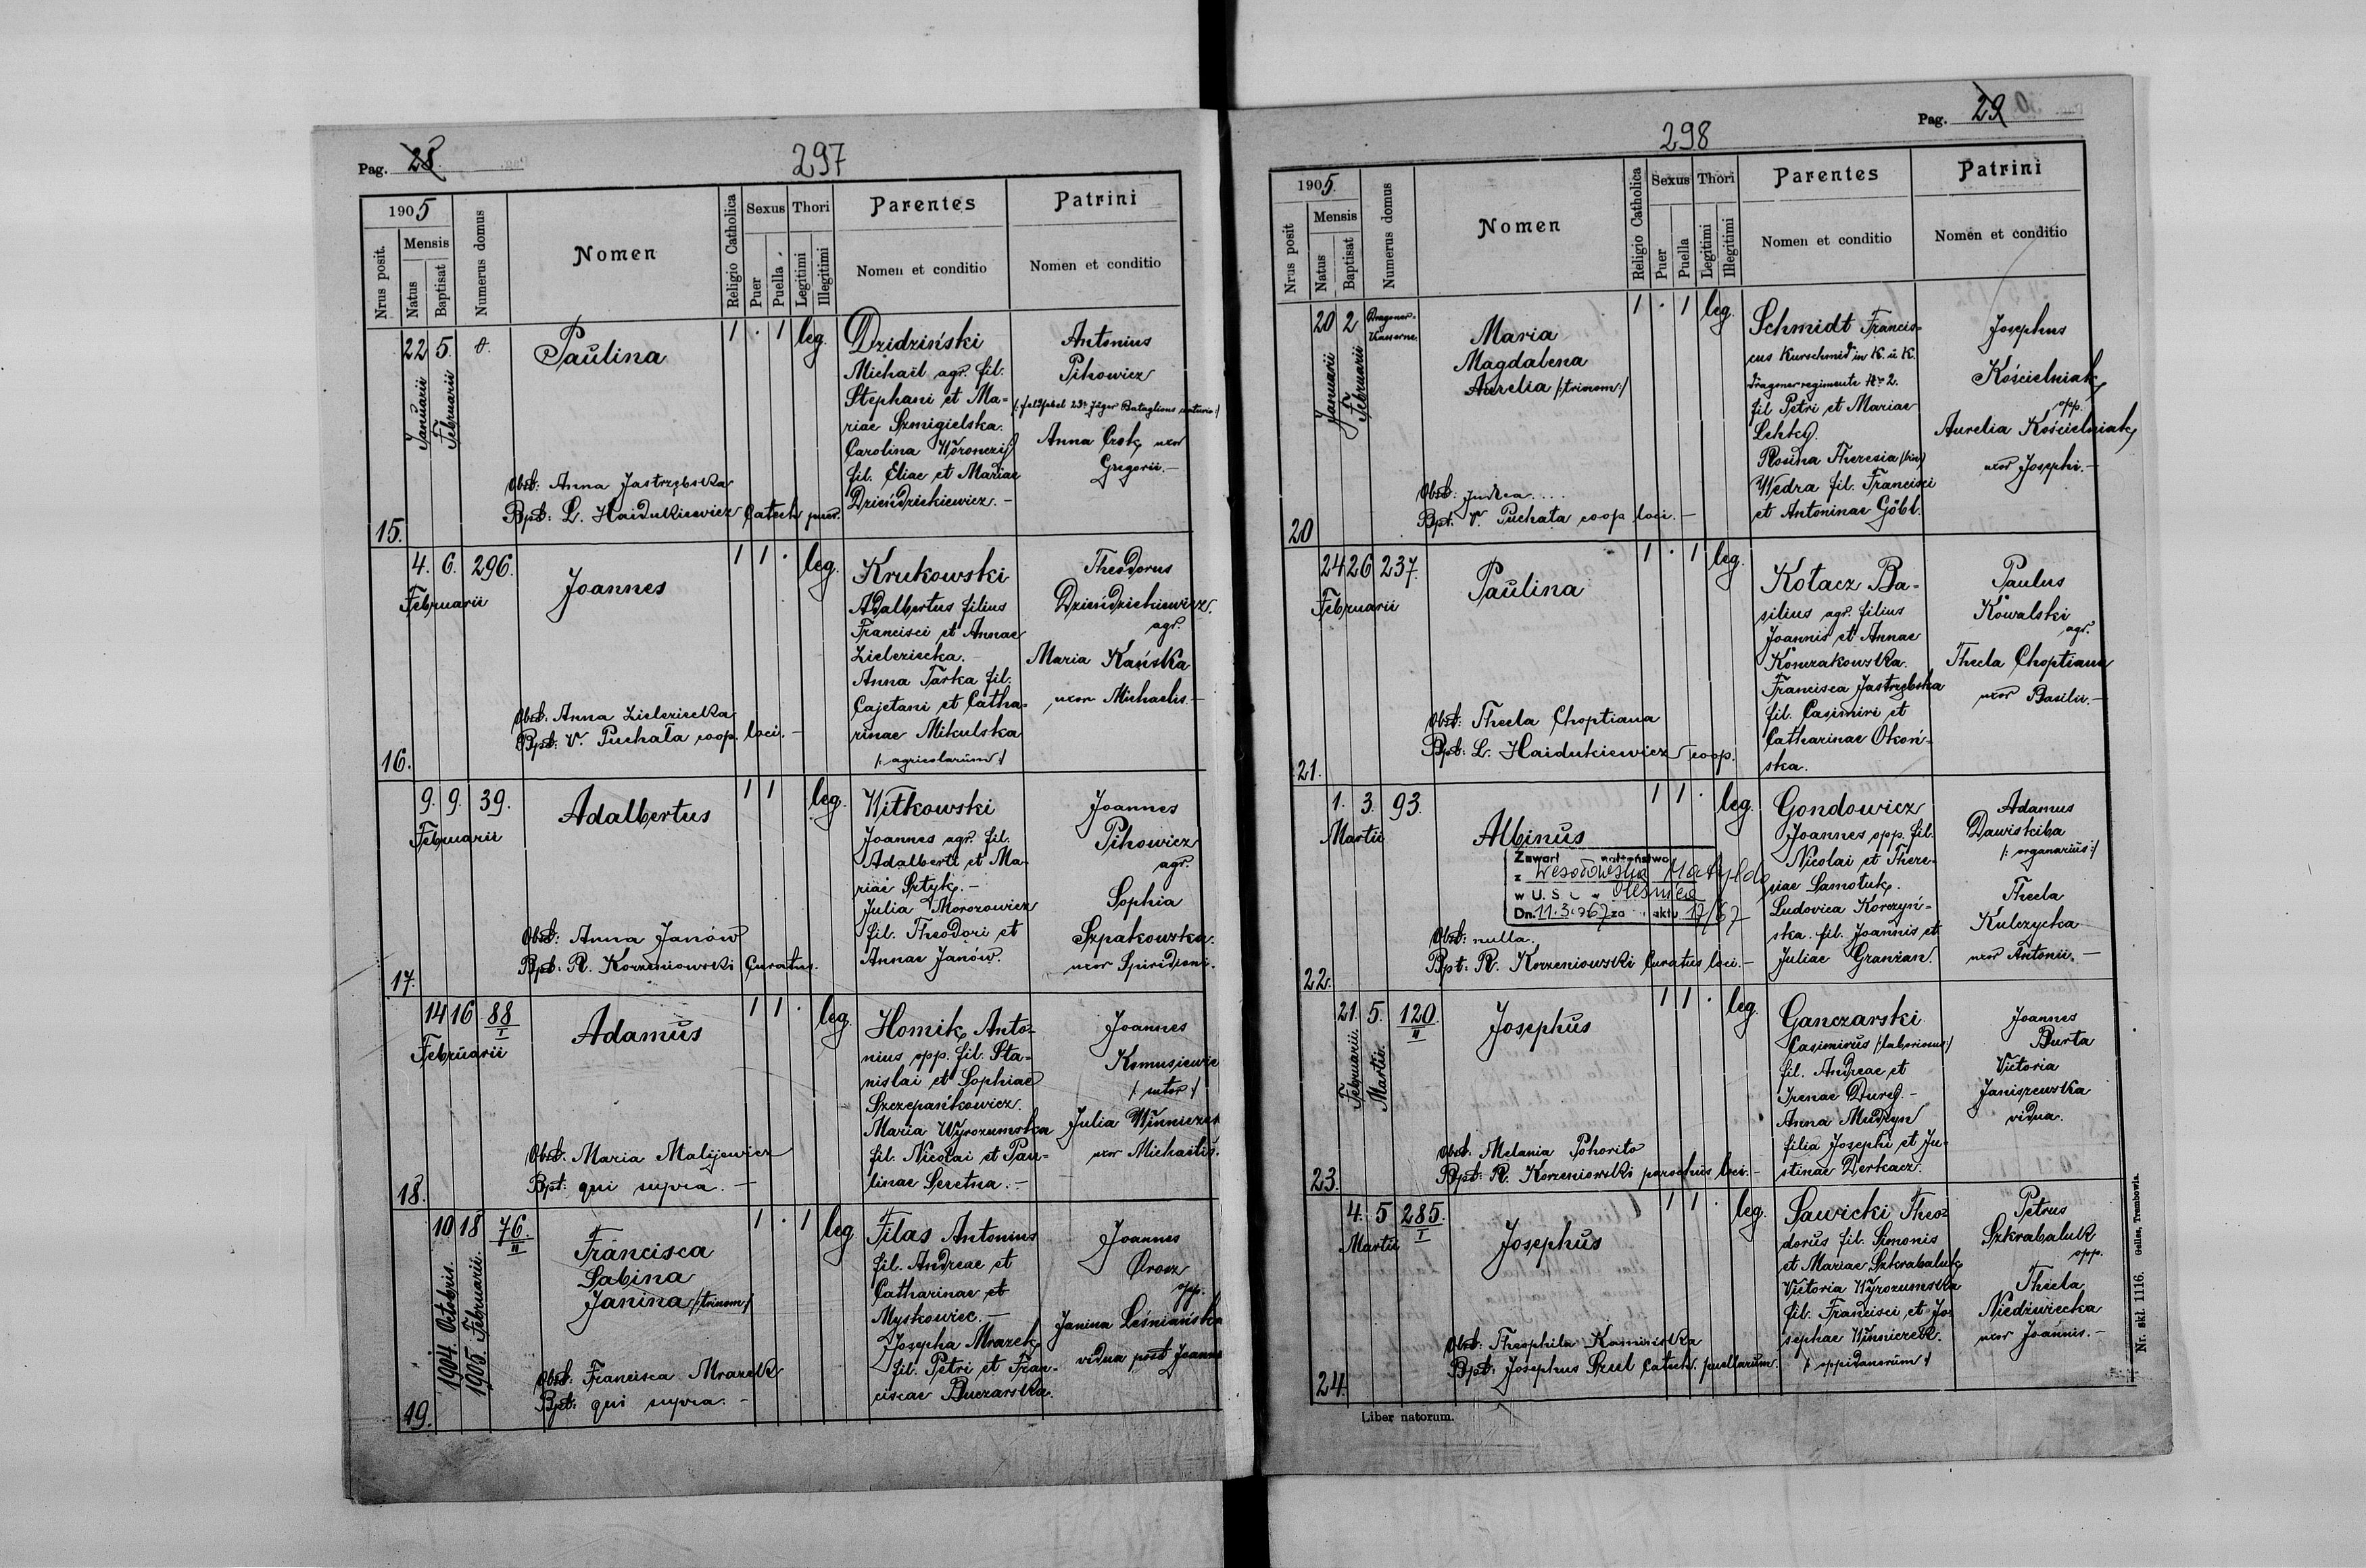 Pag. 28
297
1905
Nrus posit.
Mensis
Natus
Baptisat
Numerus domus
Nomen
Religio Catholica
Sexus
Puer
Puella
Thori
Legitimi
Illegitimi
Parentes
Nomen et conditio
Patrini
Nomen et conditio
15.
22 5. 8.
Januarii
Februarii
Paulina
1 . 1 leg.
Dzidziński
Michaël agr. fil.
Stephani et Ma-
riae Szmigielska.
Carolina Woronczij
fil. Eliae et Mariae
Dzieńdzickiewicz. -
Antonius
Pihowicz
Anna Crok uxor
Gregorii. -
Obst: Anna Jastrzębska
Bpt: L. Haidukiewicz Catech puer.
16.
4. 6. 296.
Februarii
Joannes
1 1 . leg.
Krukowski
Adalbertus filius
Francisci et Annae
Zieleziecka. -
Anna Tarka fil.
Cajetani et Catha-
rinae Mikulska
/: agricolarum :/
Theodorus
Dzieńdzickiewicz.
agr.
Maria Kańska
uxor Michaelis -
Obst. Anna Zieleziecka
Bpt: V. Puchała coop. loci. -
17.
9. 9. 39.
Februarii
Adalbertus
1 1 leg.
Witkowski
Joannes agr. fil.
Adalberti et Ma-
riae Sztyk. -
Julia Morozowicz
fil. Theodori et
Annae Janów.
Joannes
Pihowicz
agr.
Sophia
Szpakowska.
uxor Spiridioni.
Obst: Anna Janów
Bpt: R. Korzeniowski Curatus.
18.
14 16 88
I
Februarii
Adamus
1 1 . leg.
Homik Anto-
nius opp. fil. Sta-
nislai et Sophiae
Szczepańkowicz.
Maria Wyrozumska
fil. Nicolai et Pau-
linae Seretna. -
Joannes
/: sutor :/
Julia
uxor Michaëlis.
Obst. Maria Malijewicz
Bpt: qui supra. -
19.
10 18 76.
II
1904. Octobris.
1905. Februarii.
Francisca
Sabina
Janina /:trinom:/
1 . 1 leg.
Filas Antonius
fil. Andreae et
Catharinae et
Myskowiec. -
Josepha Mrazek
fil. Petri et Fran-
ciscae Buczarska.
Joannes
Orosz
opp.
Janina Leśniańska
vidua post Joanne
Obst: Francisca Mrazek
Bpt: qui supra. -
Pag. 29
298
1905.
Nrus posit
Mensis
Natus
Baptisat
Numerus domus
Nomen
Religio Catholica
Sexus
Puer
Puella
Thori
Legitimi
Illegitimi
Parentes
Nomen et conditio
Patrini
Nomen et conditio
20
20 2 Dragoner-
Kaserne.
Januarii
Februarii
Maria
Magdalena
Aurelia /:trinom:/
1 . 1 leg.
Schmidt Francis-
cus Kurschmid in K. u K.
Dragonerregimente Nr. 2.
fil Petri et Mariae
Lehky.
Rosina Theresia /bin/
Wedra fil. Francisci
et Antoninae Göbl.
Josephus
Kościelniak
opp.
Aurelia Kościelniak
uxor Josephi. -
Obst. Judea....
Bpt. V. Puchała coop loci. -
21.
24 26 237.
Februarii
Paulina
1 . 1 leg.
Kołacz Ba-
silius agr. filius
Joannis et Annae
Konczakowska.
Francisca Jastrzębska
fil. Casimiri et
Catharinae Okoń-
ska.
Paulus
Kowalski
agr.
Thecla Choptiana
uxor Basilii. -
Obst: Thecla Choptiana
Bpt: L. Haidukiewicz coop.
22.
1. 3. 93.
Martii
Albinus
1 1 . leg.
Zawarł małżeństwo
z Wesołowska Matylda
w U.S.C. w Oleśnica
Dn. 11.3.1967 za aktu 17/67
Gondowicz
Joannes opp. fil.
Nicolai et There-
siae Samołuk.
Ludovica Korczyń-
ska. fil. Joannis et
Juliae Granzan.
Adamus
Dawiskiba
/: organarius :/
Thecla
Kulczycka
uxor Antonii. -
Obst: nulla.
Bpt: R. Korzeniowski Curatus loci. -
23.
21. 5. 120
II
Februarii.
Martii.
Josephus
1 1 . leg.
Ganczarski
Casimirus /:laboriosus:/
fil. Andreae et
Irenae Dureg. -
Anna Mudzyn
filia Josephi et Ju-
stinae Derkacz.
Joannes
Burta
Victoria
Janiszewska
vidua.
Obst. Melania Pohorito
Bpt: R. Korzeniowski parochus loci. -
24.
4. 5 285.
I
Martii
Josephus
1 1 . leg.
Sawicki Theo-
dorus fil. Simonis
et Mariae Szkrabaluk
Victoria Wyrozumska
fil. Francisci et Jo-
sephae Winniczek.
/: oppidanorum :/
Petrus
Szkrabaluk
opp.
Thecla
Niedźwiecka
uxor Joannis. -
Obst: Theophila Kaminska
Bpt: Josephus Szul Catech. puellarum.
Liber natorum.
Nr. skł. 1116. Gelles, Trembowla.